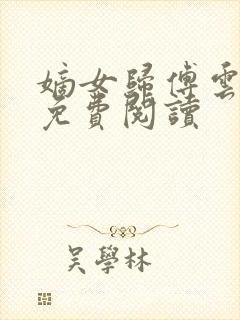 嫡女歸傅雲
免費閱讀
吴學林